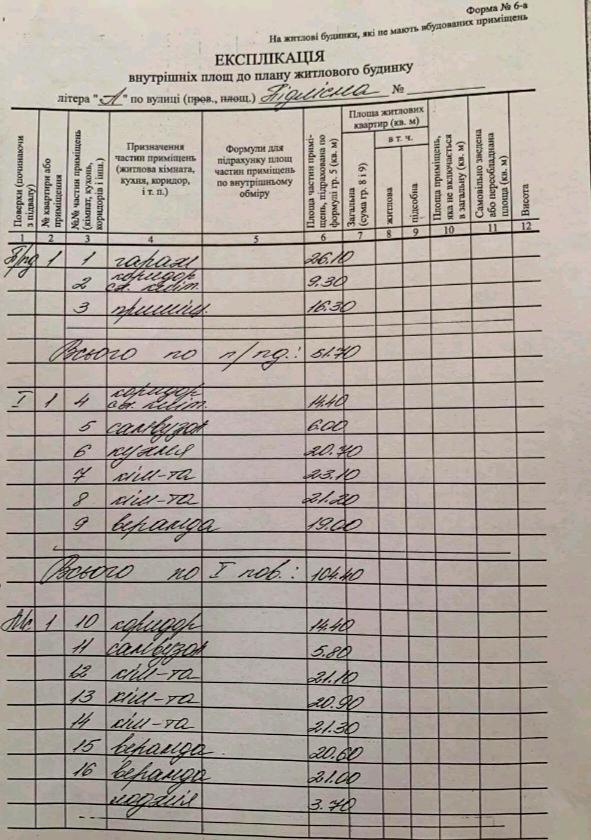 Форма № 6-а
На житлові будинки, які не мають вбудованих приміщень
ЕКСПЛІКАЦІЯ
внутрішніх площ до плану житлового будинку
літера "А" по вулиці (пров., площ.) Підлісна № 
Поверхи (починаючи з підвалу)
№ квартири або приміщення
№№ частин приміщень (кімнат, кухонь, коридорів і інш.)
Призначення частин приміщень (житлова кімната, кухня, коридор, і т. п.)
Формули для підрахунку площ частин приміщень по внутрішньому обміру
Площа частин приміщень, підрахована по формулі гр. 5 (кв. м)
Площа житлових квартир (кв. м)
Загальна (сума гр. 8 і 9)
в т. ч.
житлова
підсобна
Площа приміщень, яка не включається в загальну (кв. м)
Самовільно зведена або переобладнана площа (кв. м)
Висота
1 2 3 4 5 6 7 8 9 10 11 12
П/пд 1 1 гараж 26.10
2 коридор сх. кліт. 9.30
3 приміщ. 16.30
Всього по п/пд.: 51.70
I 1 4 коридор сх. кліт. 14.40
5 санвузол 6.00
6 кухня 20.70
7 кім-та 23.10
8 кім-та 21.20
9 веранда 19.00
Всього по I пов.: 104.40
Мс. 1 10 коридор 14.40
11 санвузол 5.80
12 кім-та 21.10
13 кім-та 20.90
14 кім-та 21.30
15 веранда 20.60
16 веранда 21.00
лоджія 3.70